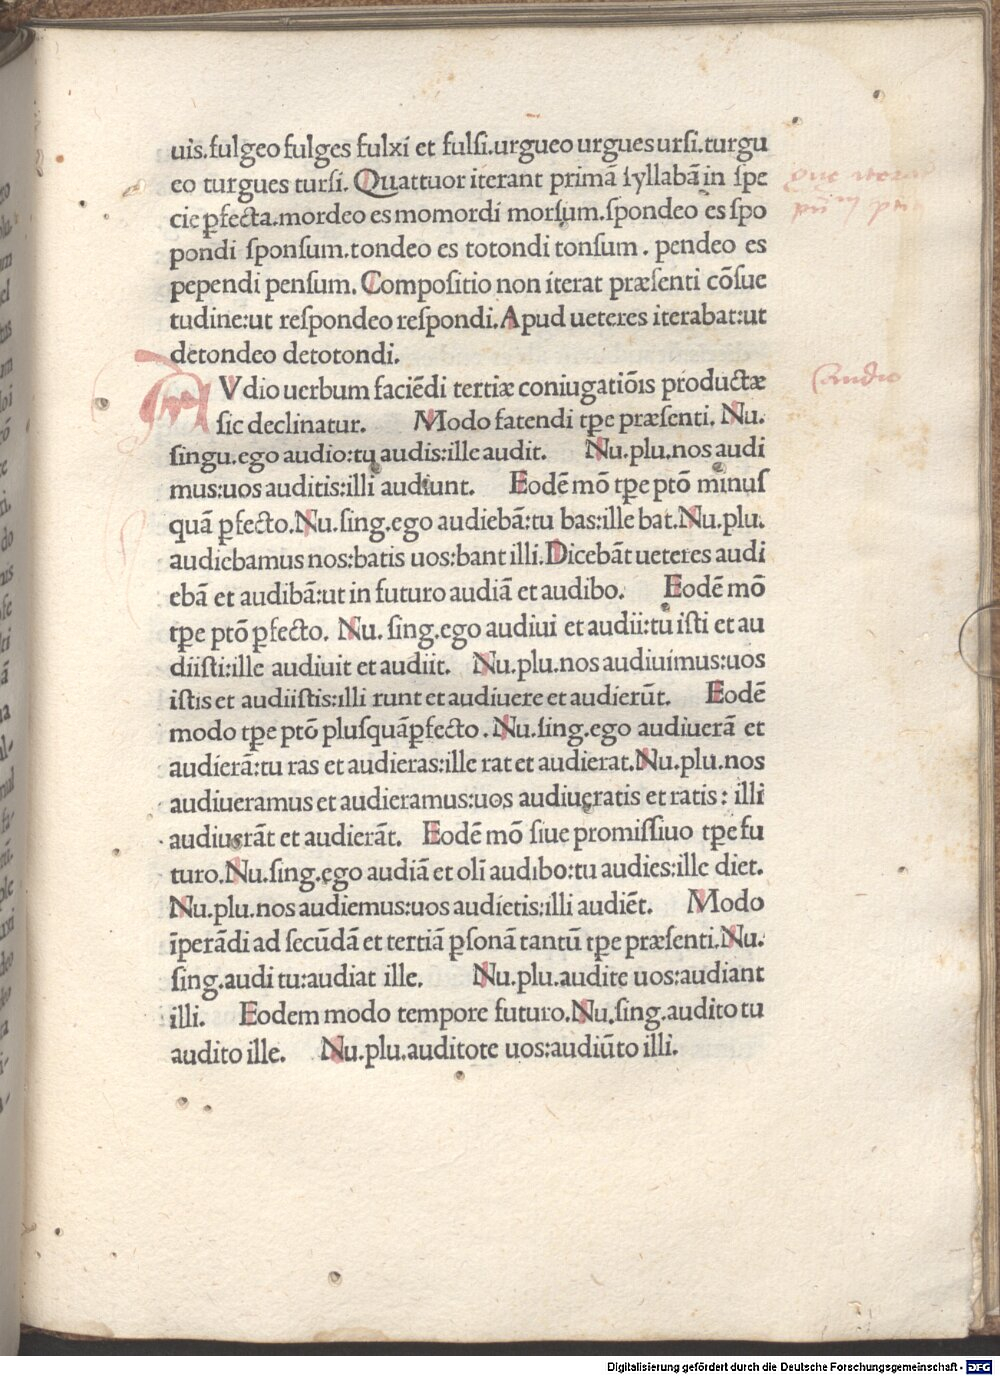 uis.fulgeo fulges fulxi et fulſi.urgueo urgues urſi.turgu
eo turgues turſi. Quattuor iterant primā ſyllabā in ſpe
cie ꝑfecta.mordeo es momordi morſum.ſpondeo es ſpo
pondi ſponſum.tondeo es totondi tonſum. pendeo es
pependi penſum. Compoſitio non iterat præſenti cōſue
tudine:ut reſpondeo reſpondi. Apud ueteres iterabat:ut
detondeo detotondi.
Vdio uerbum faciēdi tertiæ coniugatiōis productæ
ſic declinatur. Modo fatendi tꝑe præſenti. Nu.
ſingu.ego audio:tu audis:ille audit. Nu.plu.nos audi
mus:uos auditis:illi audiunt. Eodē mō tꝑe ptō minuſ
quā ꝑfecto.Nu.ſing.ego audiebā:tu bas:ille bat.Nu.plu.
audiebamus nos:batis uos:bant illi.Dicebāt ueteres audi
ebā et audibā:ut in futuro audiā et audibo. Eodē mō
tꝑe ptō ꝑfecto. Nu. ſing.ego audiui et audii:tu iſti et au
diiſti:ille audiuit et audiit. Nu.plu.nos audiuimus:uos
iſtis et audiiſtis:illi runt et audiuere et audierūt. Eodē
modo tꝑe ptō pluſquāꝑfecto. Nu.ſing.ego audiuerā et
audierā:tu ras et audieras:ille rat et audierat.Nu.plu.nos
audiueramus et audieramus:uos audiueratis et ratis: illi
audiuerāt et audierāt. Eodē mō ſiue promiſſiuo tꝑe fu
turo.Nu.ſing.ego audiā et oli audibo:tu audies:ille diet.
Nu.plu.nos audiemus:uos audietis:illi audiēt. Modo
īperādi ad ſecūdā et tertiā ꝑſonā tantū tꝑe præſenti.Nu.
ſing.audi tu:audiat ille. Nu.plu.audite uos:audiant
illi. Eodem modo tempore futuro.Nu.ſing.audito tu
audito ille. Nu.plu.auditote uos:audiūto illi.
audio
Digitalisierung gefördert durch die Deutsche Forschungsgemeinschaft - DFG